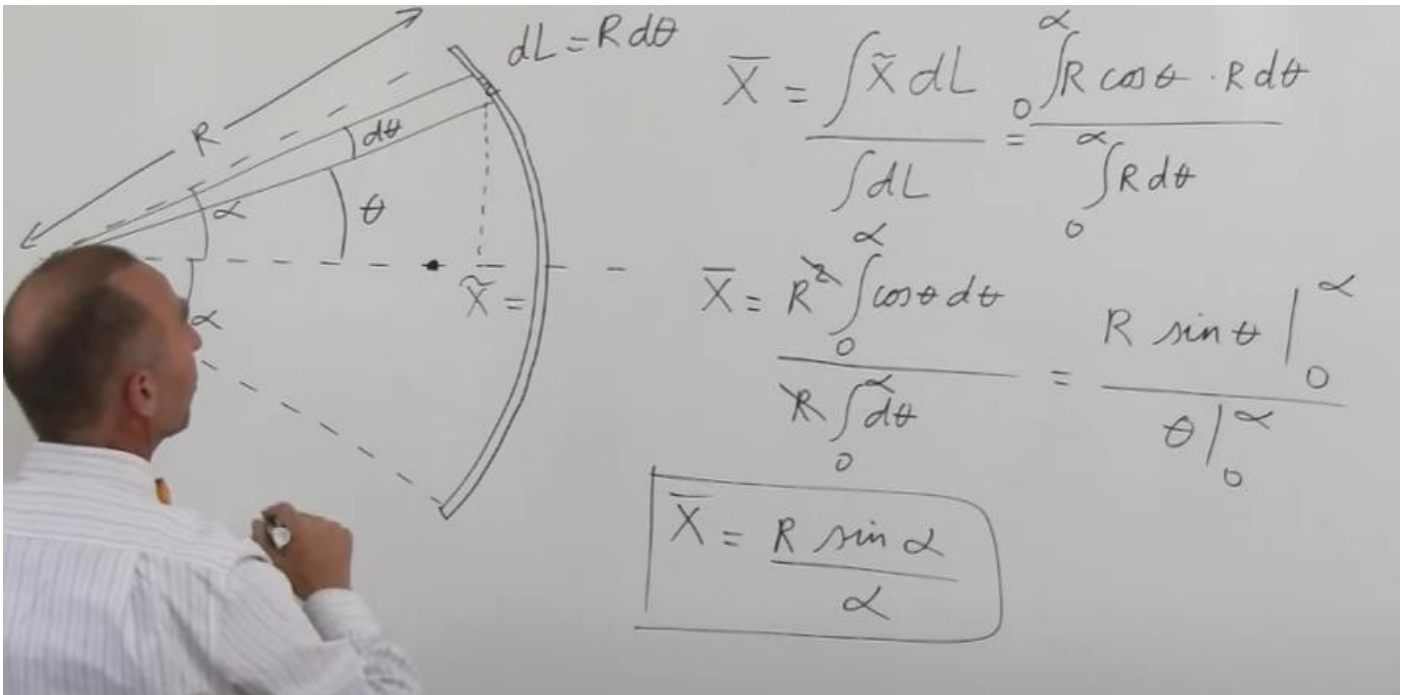 dL = R dθ
R
dθ
α
θ
α
X̃ =
X̄ = ∫ X̃ dL / ∫ dL = ₀∫^α R cos θ · R dθ / ₀∫^α R dθ
X̄ = R² ₀∫^α cos θ dθ / R ₀∫^α dθ = R sin θ |₀^α / θ |₀^α
X̄ = R sin α / α